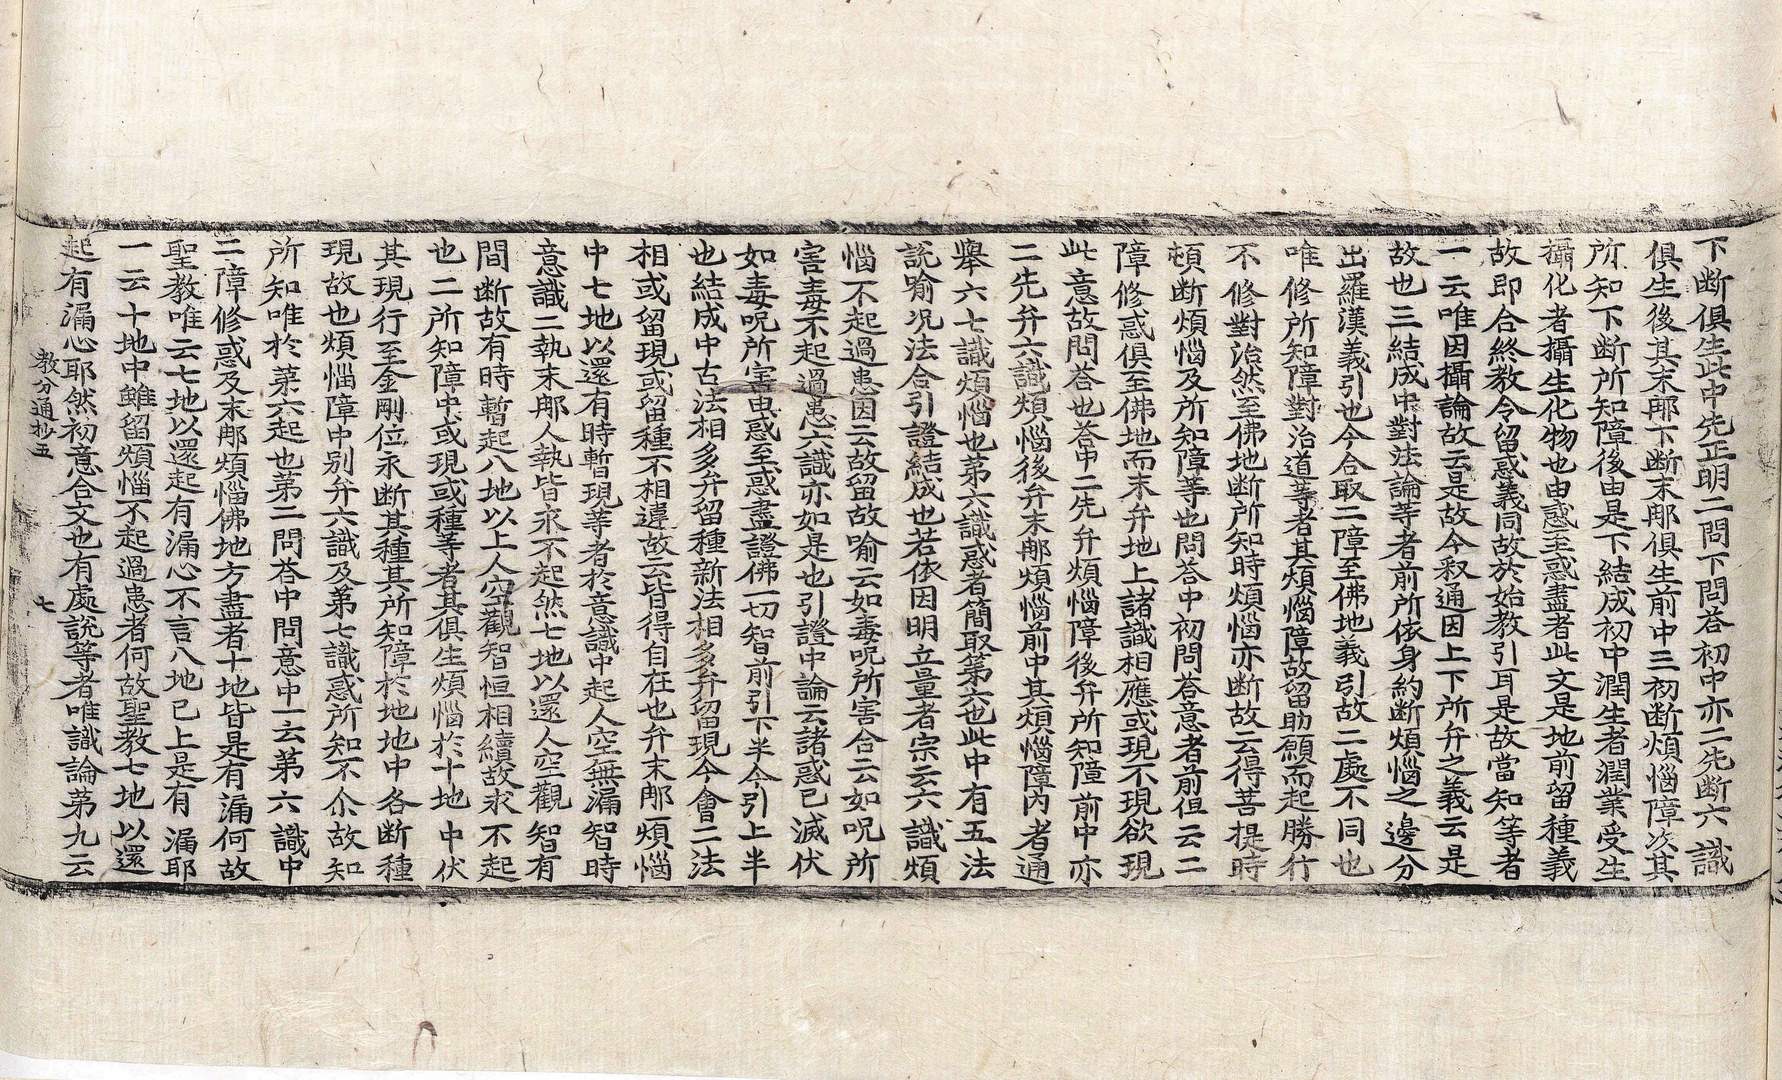 下断俱生此中先正明二問下問荅初中亦二先断六識
俱生後其末那下断末那俱生前中三初断煩惱障次其
所知下断所知障後由是下結成初中潤生者潤業受生
攝化者攝生化物也由惑至惑盡者此文是地前留種義
故即合終教令留惑義同故於始教引耳是故當知等者
一云唯因攝論故云是故今叙通因上下所弁之義云是
故也三結成中對法論等者前所依身約断煩惱之邊分
出羅漢義引也今合取二障至佛地義引故二處不同也
唯修所知障對治道等者其煩惱障故留助願而起勝行
不修對治然至佛地断所知時煩惱亦断故云得菩提時
頓断煩惱及所知障等也問荅中初問荅意者前但云二
障修惑俱至佛地而未弁地上諸識相應或現不現欲現
此意故問荅也荅中二先弁煩惱障後弁所知障前中亦
二先弁六識煩惱後弁末那煩惱前中其煩惱障內者通
舉六七識煩惱也第六識惑者簡取第六也此中有五法
說喻况法合引證結成也若依因明立量者宗云六識煩
惱不起過患因云故留故喻云如毒呪所害合云如呪所
害毒不起過患六識亦如是也引證中論云諸惑已滅伏
如毒呪所害由惑至惑盡證佛一切智前引下半今引上半
也結成中古法相多弁留種新法相多弁留現今會二法
相或留現或留種不相違故云皆得自在也弁末那煩惱
中七地以還有時暫現等者於意識中起人空無漏智時
意識二執末那人執皆永不起然七地以還人空觀智有
間断故有時暫起八地以上人空觀智恒相續故永不起
也二所知障中或現或種等者其俱生煩惱於十地中伏
其現行至金剛位永断其種其所知障於地地中各断種
現故也煩惱障中別弁六識及第七識惑所知不尒故知
所知唯於第六起也第二問荅中問意中一云第六識中
二障修惑及末那煩惱佛地方盡者十地皆是有漏何故
聖教唯云七地以還起有漏心不言八地已上是有漏耶
一云十地中雖留煩惱不起過患者何故聖教七地以還
起有漏心耶然初意合文也有處說等者唯識論第九云
教分通抄五 七